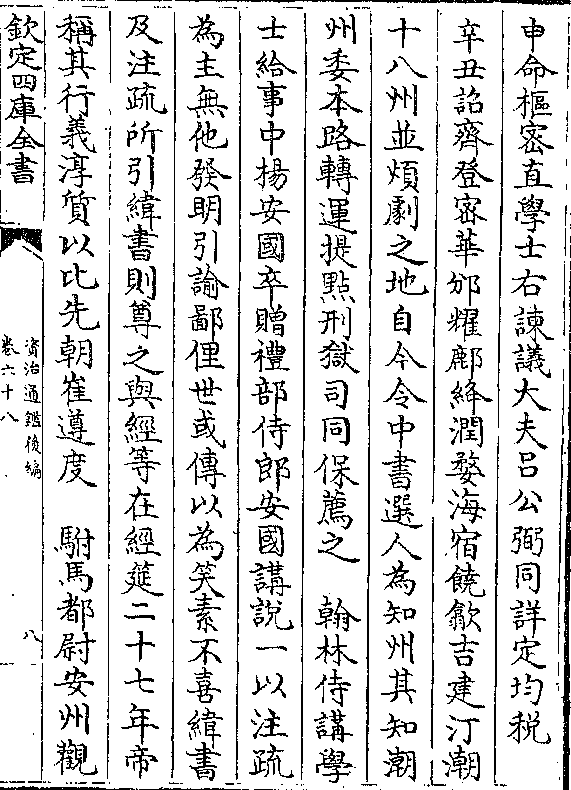 申命樞密直學士右諫議大夫吕公弼同詳定均税
辛丑詔齊登密華邠耀鄜絳潤婺海宿饒歙吉建汀潮
十八州並煩劇之地自今令中書選人為知州其知潮
州委本路轉運提點刑獄司同保薦之　翰林侍講學
士給事中楊安國卒贈禮部侍郎安國講說一以注疏
為主無他發明引諭鄙俚世或傳以為笑素不喜緯書
及注疏所引緯書則尊之與經等在經筵二十七年帝
稱其行義淳質以比先朝崔遵度　駙馬都尉安州觀
欽定四庫全書
資治通鑑後編
卷六十八
八